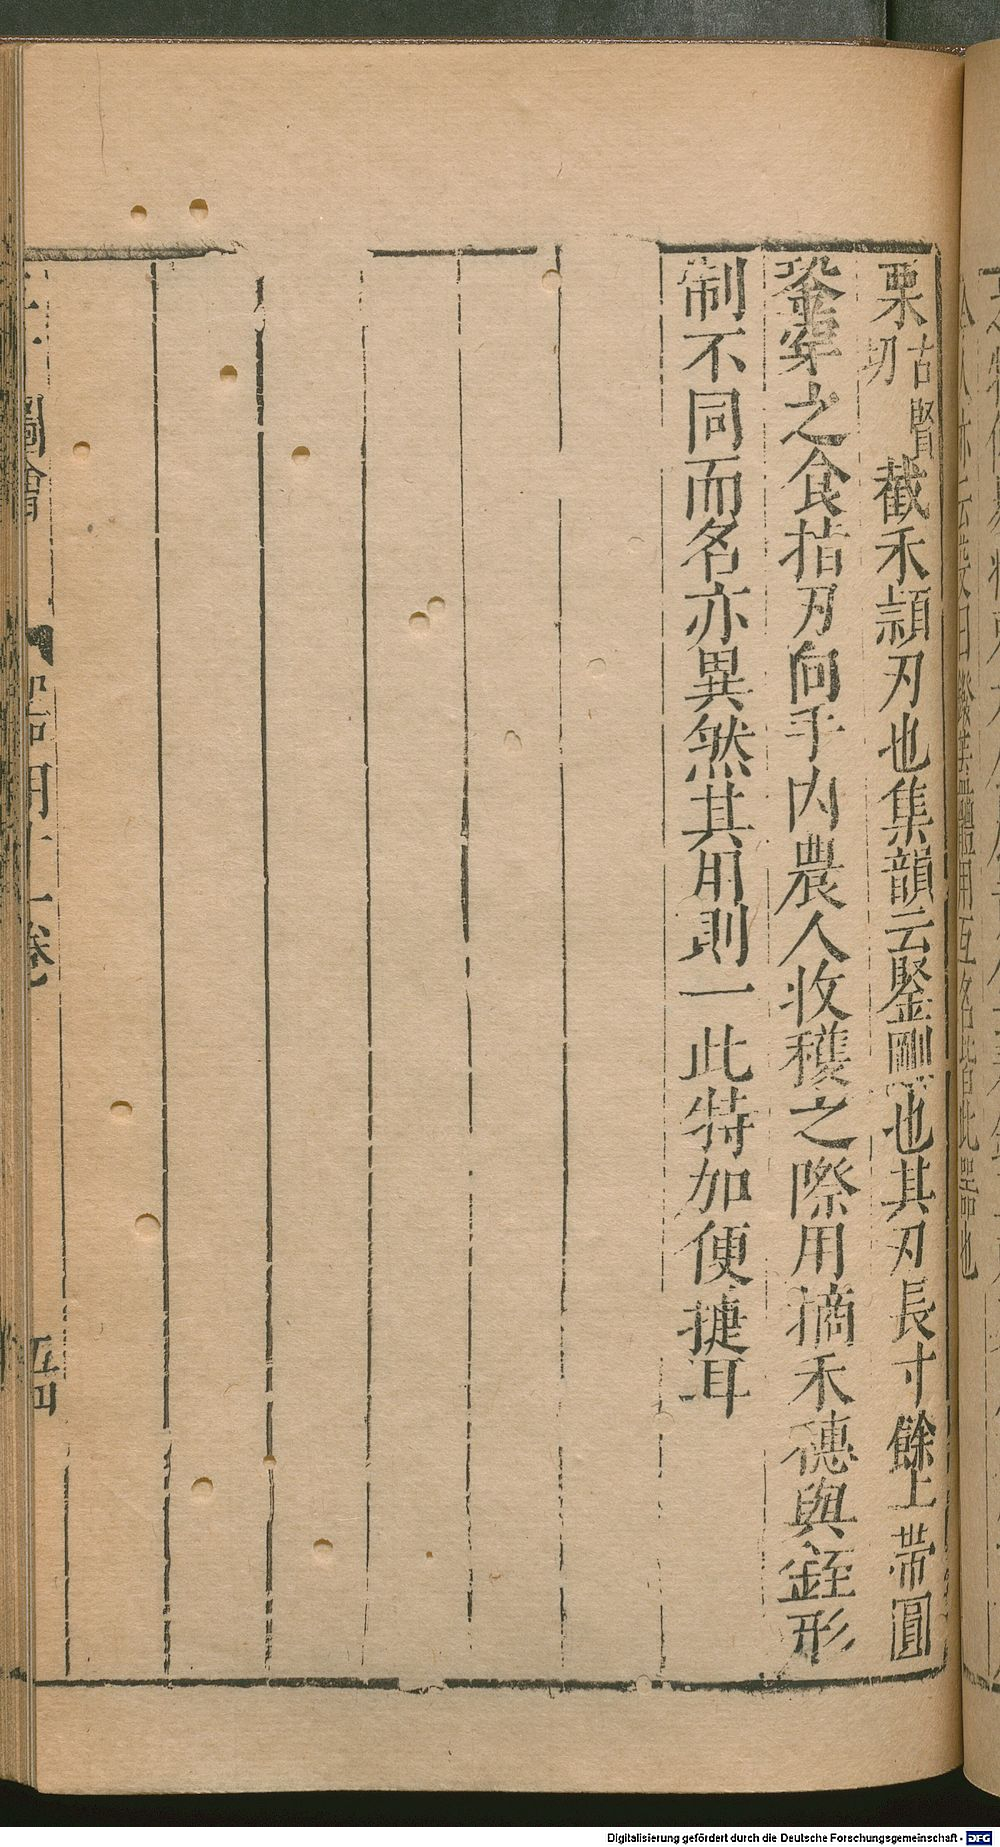 栗古賢切截禾穎刃也集韻云鋻剛也其刃長寸餘上帶圓
銎穿之食指刃向手內農人收穫之際用摘禾穗與銍形
制不同而名亦異然其用則一此特加便捷耳
圖會 器用十一卷
Digitalisierung gefördert durch die Deutsche Forschungsgemeinschaft - DFG